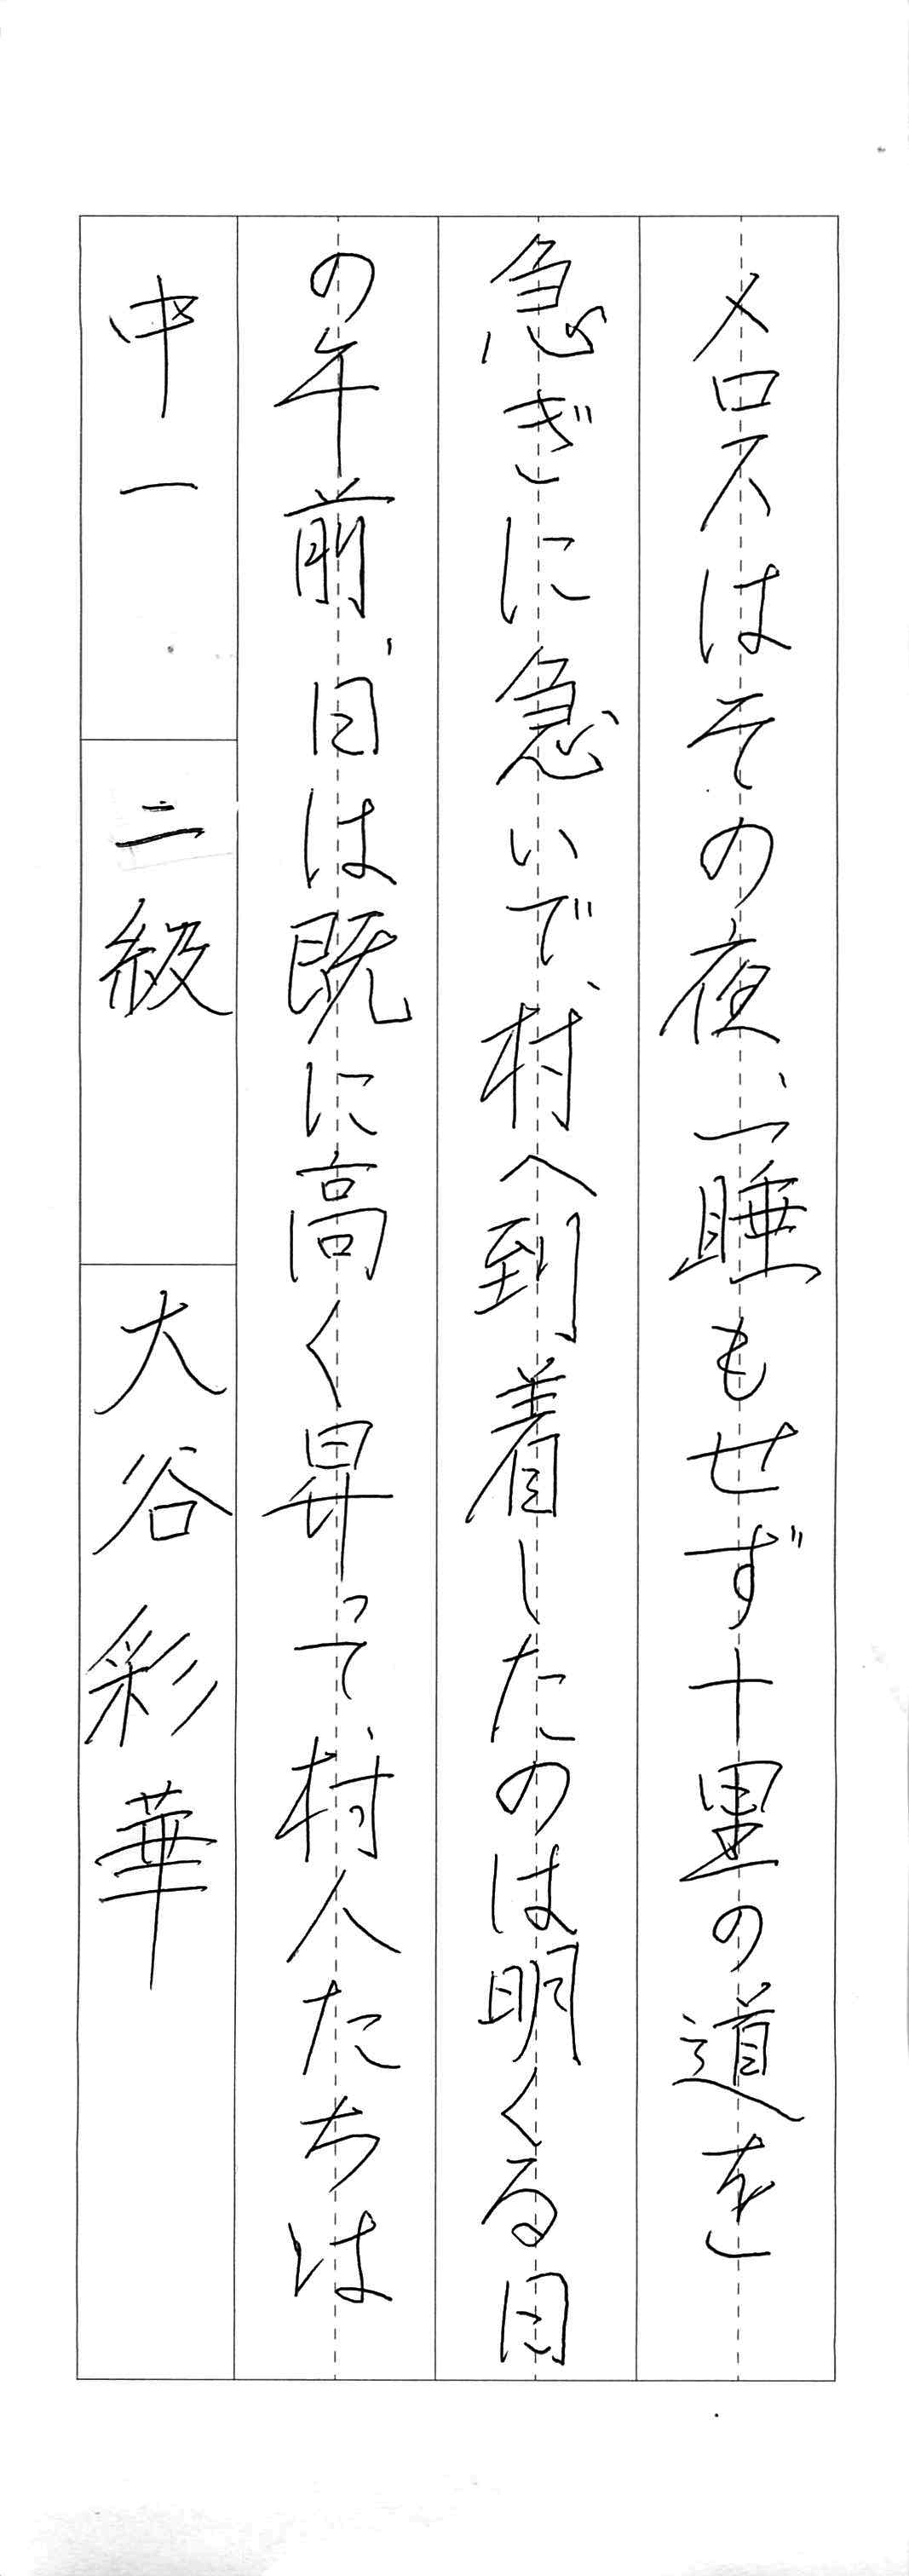 メロスはその夜、一睡もせず十里の道を
急ぎに急いで、村へ到着したのは明くる日
の午前、日は既に高く昇って、村人たちは
中一
二級
大谷彩華